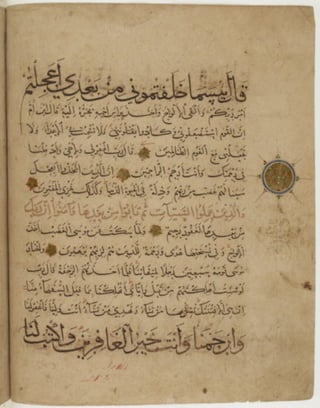 قال بئسما خلفتموني من بعدي أعجلتم
أمر ربكم وألقى الألواح وأخذ برأس أخيه يجره إليه قال ابن أم
إن القوم استضعفوني وكادوا يقتلونني فلا تشمت بي الأعداء ولا
تجعلني مع القوم الظالمين قال رب اغفر لي ولأخي وأدخلنا
في رحمتك وأنت أرحم الراحمين إن الذين اتخذوا العجل
سينالهم غضب من ربهم وذلة في الحياة الدنيا وكذلك نجزي المفترين
والذين عملوا السيئات ثم تابوا من بعدها وآمنوا إن ربك
من بعدها لغفور رحيم ولما سكت عن موسى الغضب أخذ
الألواح وفي نسختها هدى ورحمة للذين هم لربهم يرهبون واختار
موسى قومه سبعين رجلا لميقاتنا فلما أخذتهم الرجفة قال رب
لو شئت أهلكتهم من قبل وإياي أتهلكنا بما فعل السفهاء منا
إن هي إلا فتنتك تضل بها من تشاء وتهدي من تشاء أنت ولينا فاغفر لنا
وارحمنا وأنت خير الغافرين واكتب لنا